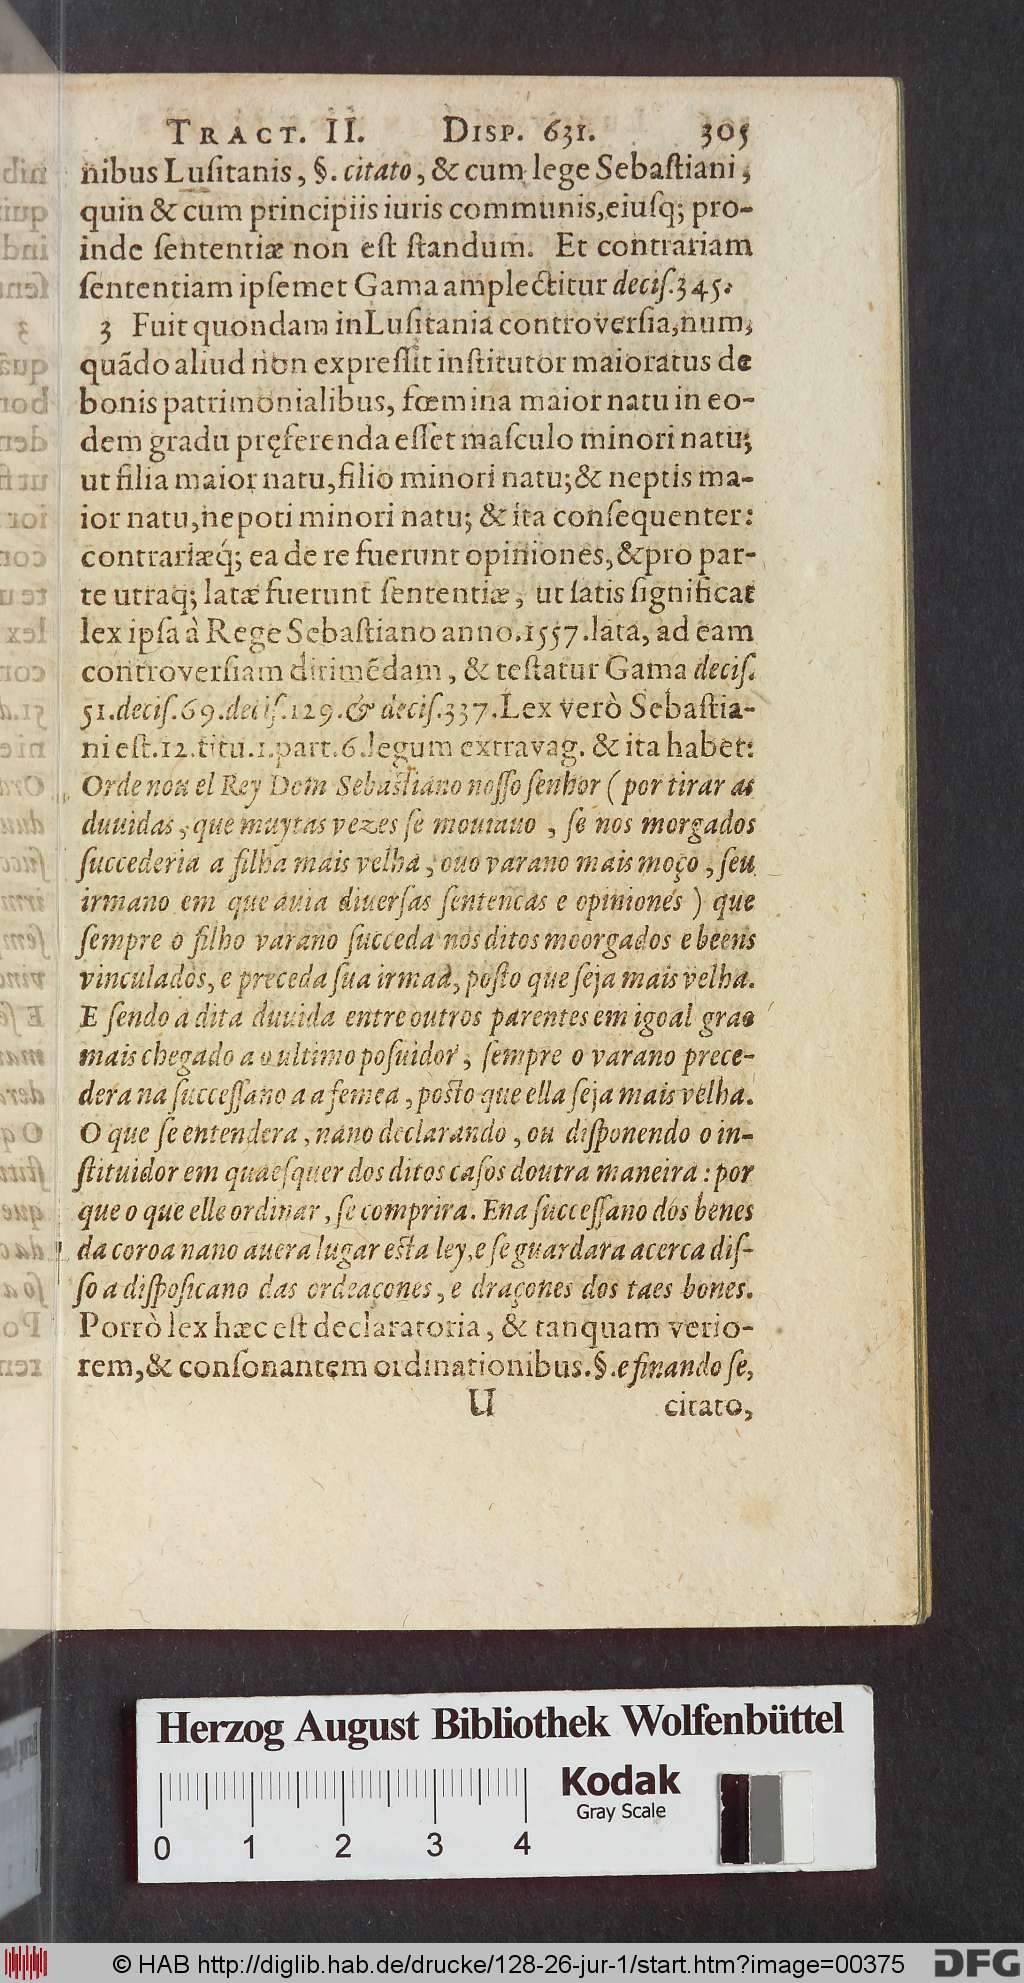 TRACT. II. DISP. 631. 305
nibus Luſitanis, §. citato, & cum lege Sebaſtiani,
quin & cum principiis iuris communis, eiuſq; pro-
inde ſententiæ non eſt ſtandum. Et contrariam
ſententiam ipſemet Gama amplectitur deciſ. 345.
3 Fuit quondam in Luſitania controverſia, num,
quãdo aliud non expreſſit inſtitutor maioratus de
bonis patrimonialibus, fœmina maior natu in eo-
dem gradu pręferenda eſſet maſculo minori natu;
ut filia maior natu, filio minori natu; & neptis ma-
ior natu, nepoti minori natu; & ita conſequenter:
contrariæq́; ea de re fuerunt opiniones, & pro par-
te utraq; latæ fuerunt ſententiæ, ut ſatis ſignificat
lex ipſa à Rege Sebaſtiano anno. 1557. lata, ad eam
controverſiam dirimẽdam, & teſtatur Gama deciſ.
51. deciſ. 69. deciſ. 129. & deciſ. 337. Lex verò Sebaſtia-
ni eſt. 12. titu. 1. part. 6. legum extravag. & ita habet:
Orde nou el Rey Dom Sebaſtiano noſſo ſenhor (por tirar as
duuidas, que muytas vezes ſe mouiauo, ſe nos morgados
ſuccederia a filha mais velha, ouo varano mais moço, ſeu
irmano em que auia diuerſas ſentencas e opiniones) que
ſempre o filho varano ſucceda nos ditos moorgados e beens
vinculados, e preceda ſua irmaà, poſto que ſeja mais velha.
E ſendo a dita duuida entre outros parentes em igoal grao
mais chegado a o ultimo poſuidor, ſempre o varano prece-
dera na ſucceſſano a a femea, poſto que ella ſeja mais velha.
O que ſe entendera, nano declarando, ou diſponendo o in-
ſtituidor em quaeſquer dos ditos caſos doutra maneira: por
que o que elle ordinar, ſe comprira. Ena ſucceſſano dos benes
da coroa nano auera lugar eſta ley, e ſe guardara acerca diſ-
ſo a diſpoſicano das ordeaçones, e draçones dos taes bones.
Porrò lex hæc eſt declaratoria, & tanquam verio-
rem, & conſonantem ordinationibus. §. e finando ſe,
U citato,
Herzog August Bibliothek Wolfenbüttel
Kodak
Gray Scale
0 1 2 3 4
© HAB http://diglib.hab.de/drucke/128-26-jur-1/start.htm?image=00375 DFG